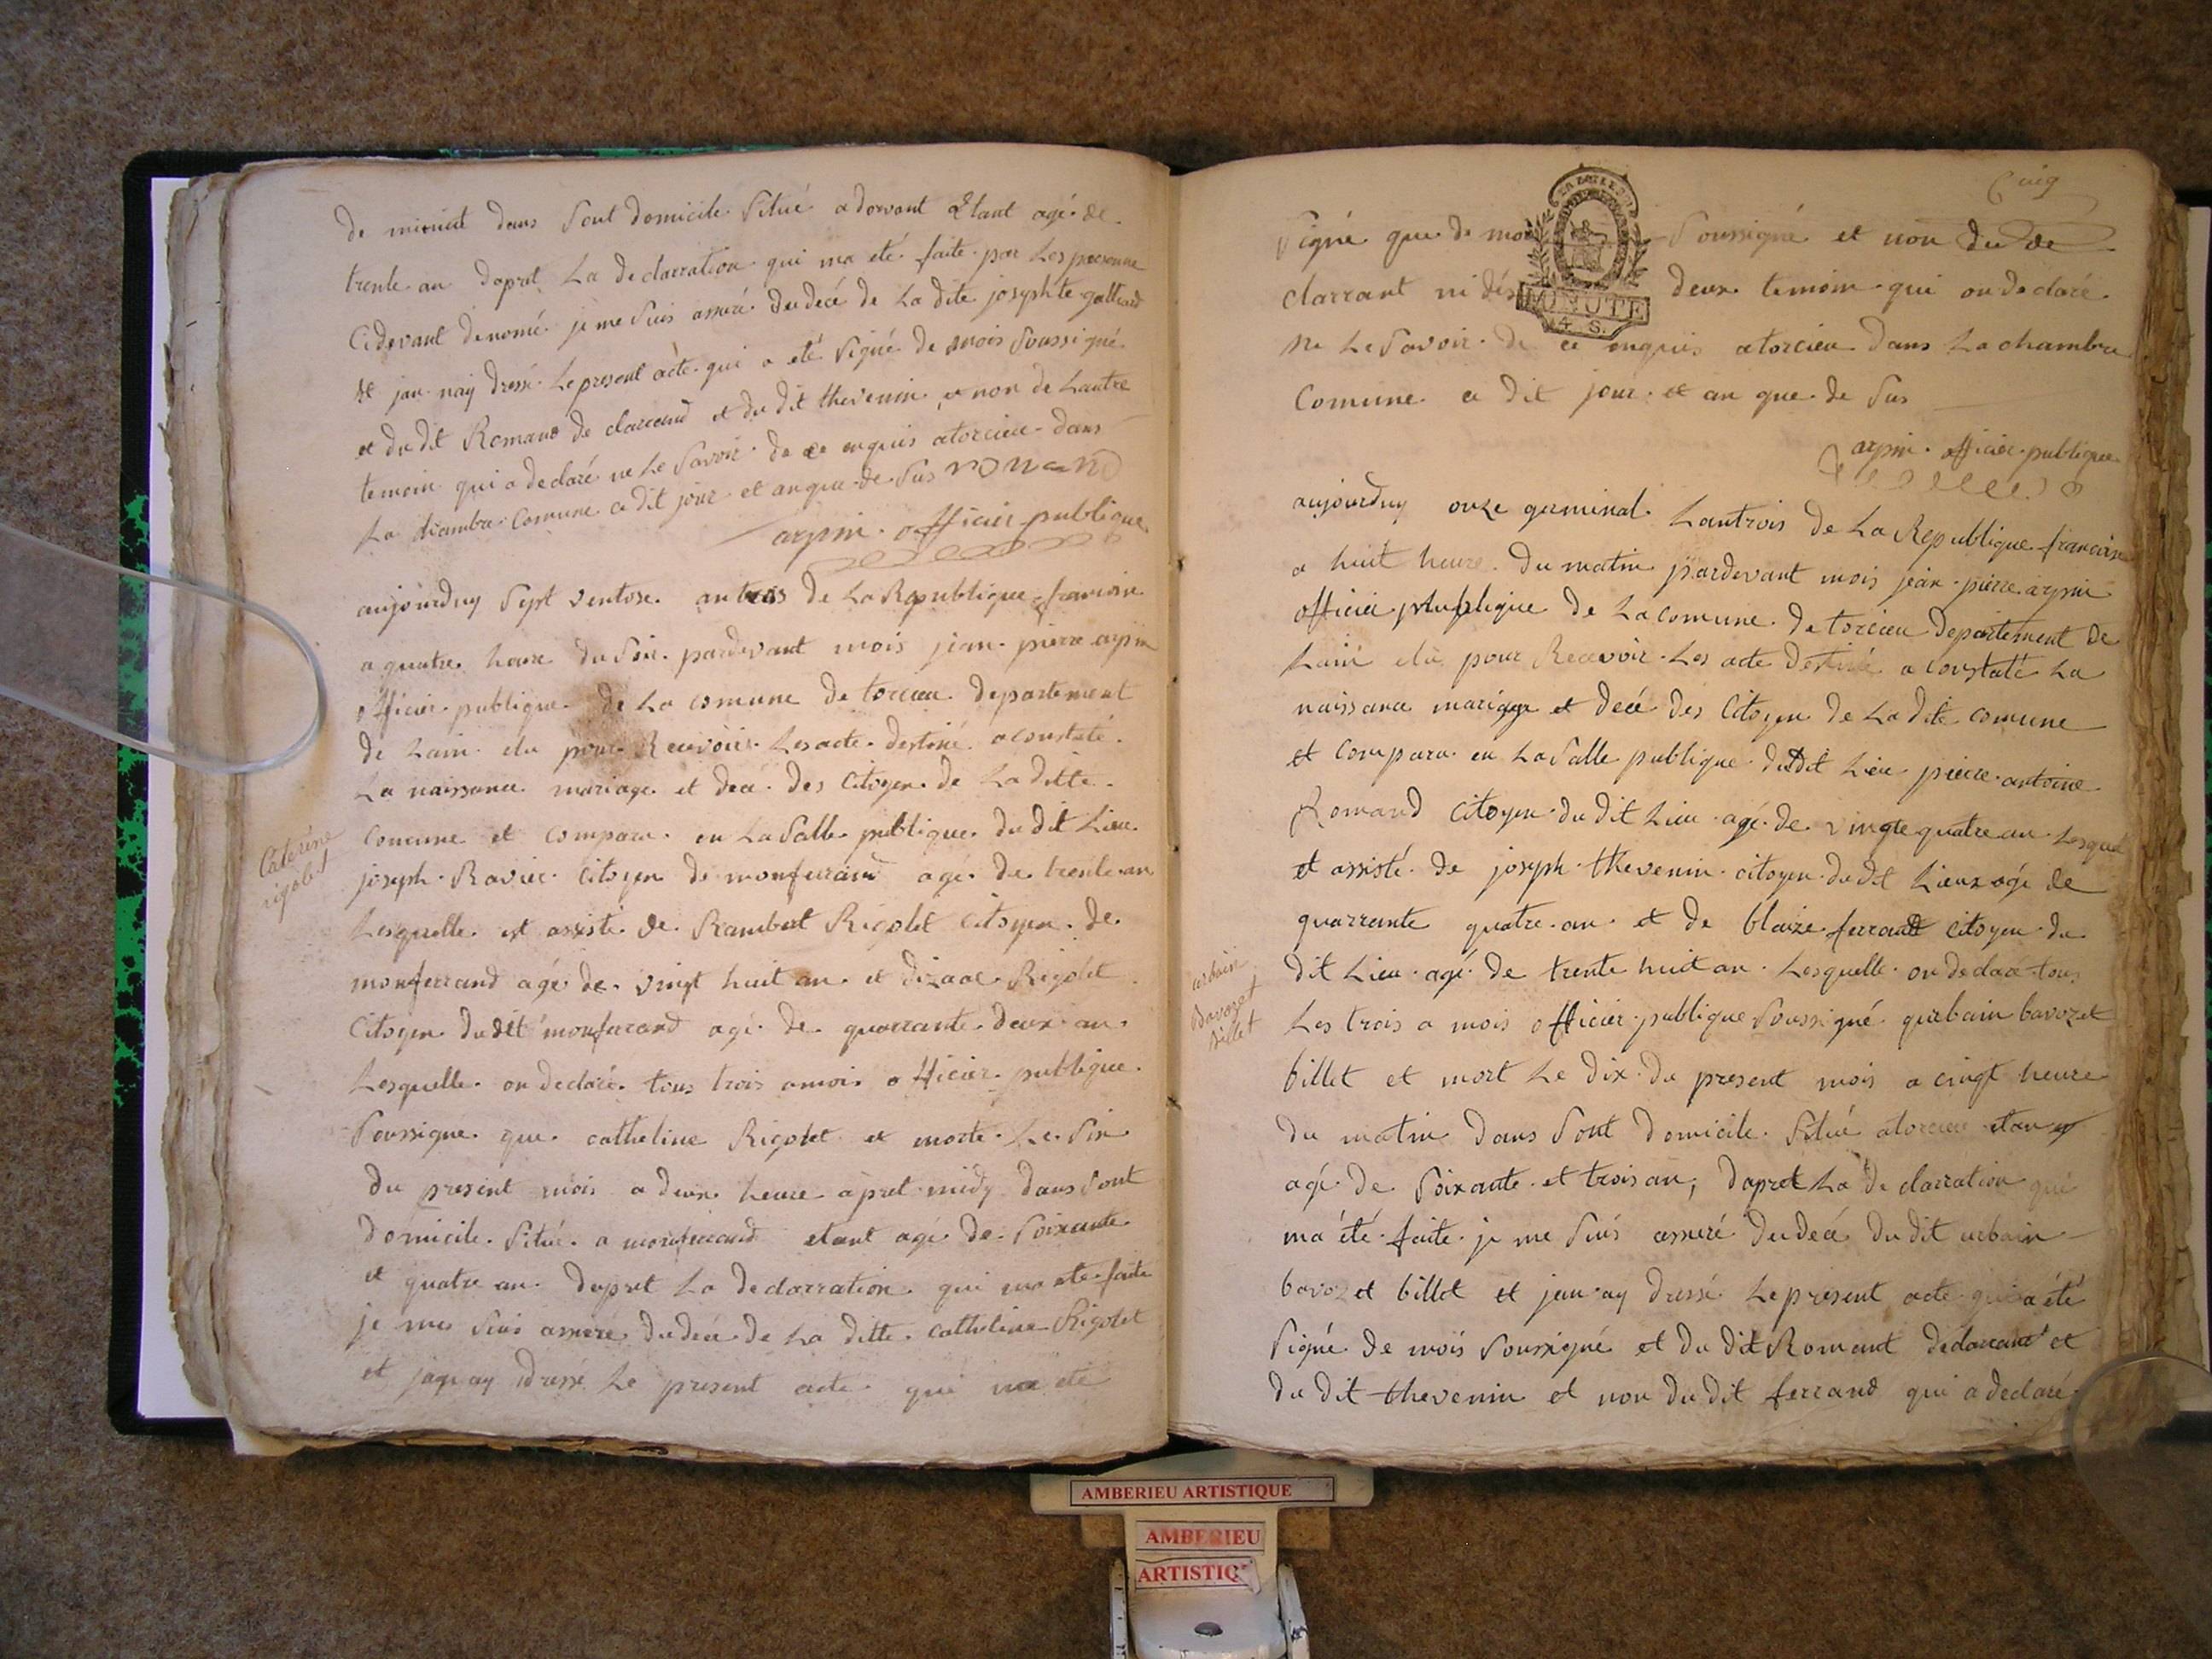 de minuit dans sont domicile situé a dorvant Etant agé de
trente an dapret La declarration qui ma eté faite par Les personne
cidevant denomé je me suis assuré du decé de La dite josephte galliard
et jan nay dressé Le present acte qui a eté signé de mois soussigné
et du dit Romand declarrand et du dit thevenin et non de Lautre
temoin qui a declaré ne Le savoir de ce enquis a torcieu dans
La chambre comune ce dit jour et an que de sus romand
arpin officier publique
aujourduy sept ventose an trois de La Republique francoise
a quatre heure du soir pardevant mois jean pierre arpin
officier publique de La comune de torcieu departement
de Lain elu pour Recevoir Les acte destiné a constaté
La naissance mariage et decé des citoyen de La ditte
comune et comparu en La salle publique du dit Lieu
joseph Ravier citoyen de monferrand agé de trente an
Lesquelle et assisté de Rambert Rigolet citoyen de
monferrand agé de vingt huit an et dizaac Rigolet
Citoyen du dit monferrand agé de quarrante deux an
Lesquelle on declaré tous trois a mois officier publique
soussigne que catheline Rigolet et morte Le six
du present mois a deux heure apret midy dans sont
domicile situé a monferrand etant agé de soixante
et quatre an dapret La declarration qui ma ete faite
je me suis assuré du decé de La ditte catheline Rigolet
et jaqn ay dressé Le present acte qui na eté
Caterine
rigolet
signé que de mois soussigné et non du de
clarrant ni des deux temoin qui on declaré
ne Le savoir de ce enquis a torcieu dans La chambre
comune ce dit jour et an que de sus
arpin officier publique
MINUTE
4 S.
aujourduy onze germinal Lantrois de La Republique francoise
a huit heure du matin pardevant mois jean pierre arpin
officier publique de La comune de torcieu departement de
Lain elu pour Recevoir Les acte destiné a constaté La
naissance mariage et decé des citoyen de La dite comune
et comparu en La salle publique dudit Lieu pierre antoine
Romand citoyen du dit Lieu agé de vingte quatre an Lesquel
et assisté de joseph thevenin citoyen du dit Lieux agé de
quarrante quatre an et de blaize ferrand citoyen du
dit Lieu agé de trente huit an Lesquelle on declare tous
Les trois a mois officier publique soussigné qurbain bavozet
billet et mort Le dix du present mois a cinqt heure
du matin dans sont domicile situé a torcieu etan
agé de soixante et trois an, dapret La declarration qui
ma été faite je me suis assuré du decé du dit urbain
bavozet billet et jan ay dressé Le present acte qui a été
signé de mois soussigné et du dit Romant declarrant et
du dit thevenin et non du dit ferrand qui a declaré
urbain
Bavozet
billet